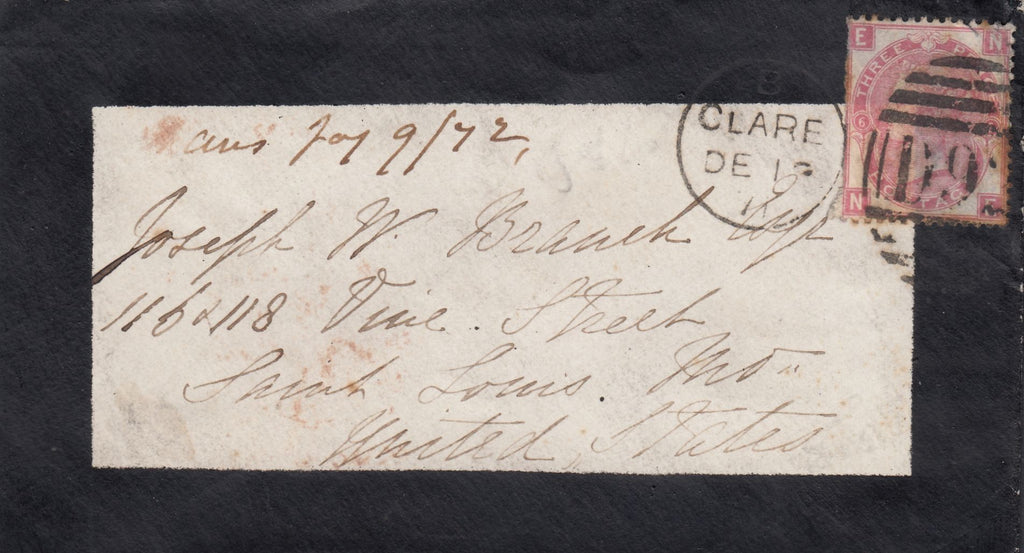 ans Jay 9/72,
Joseph W. Branch Esqr
116 & 118 Vine Street
Saint Louis. Mo
United States
CLARE
DE 1
E N
THREE P
6
N E
D9